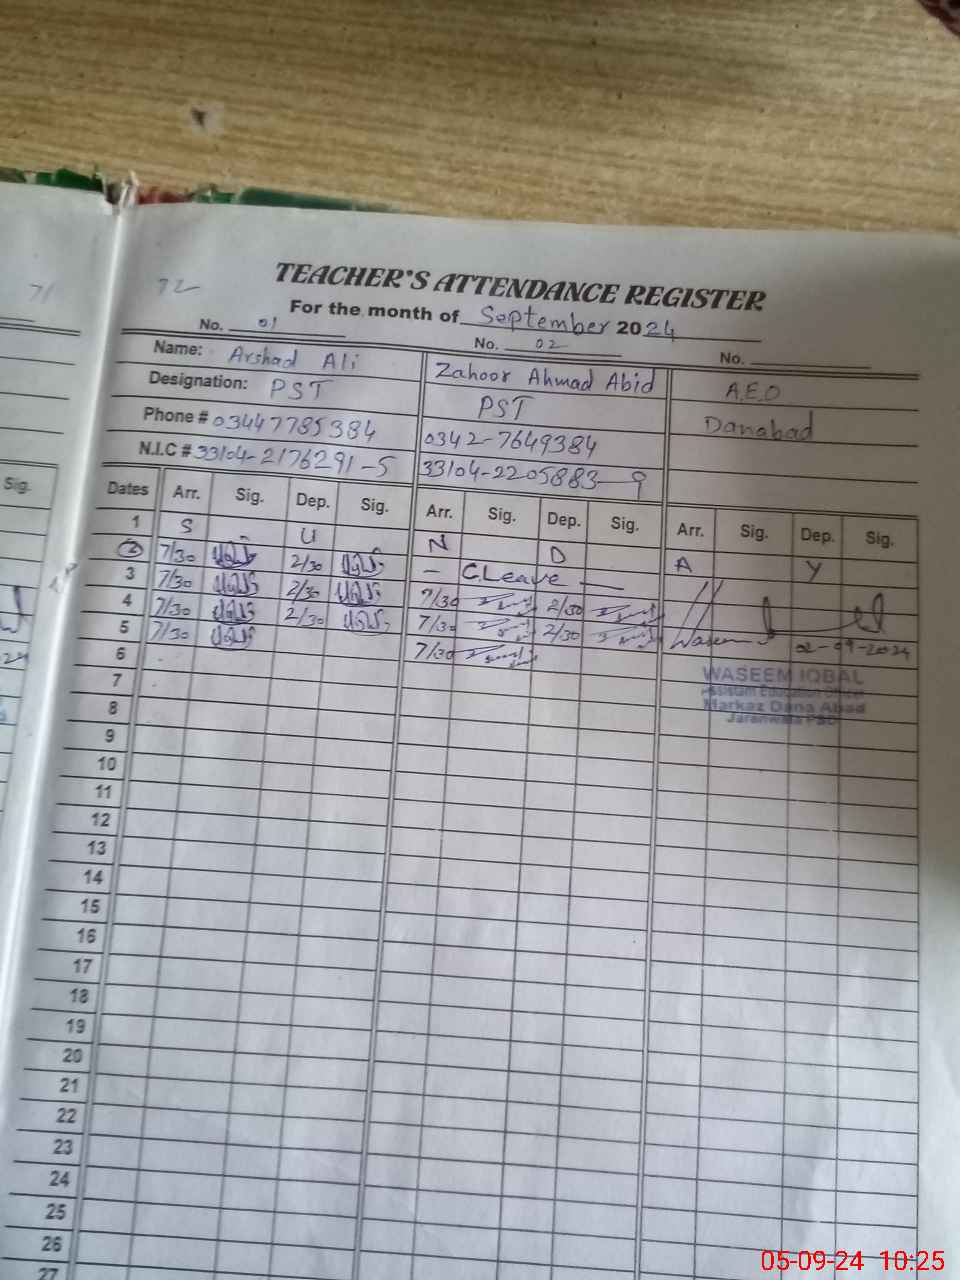 71
72
TEACHER'S ATTENDANCE REGISTER
For the month of September 2024
No. 01 No. 02 No.
Name: Arshad Ali Zahoor Ahmad Abid A.E.O
Designation: PST PST Danabad
Phone # 03447785384 0342-7649384
N.I.C # 33104-2176291-5 33104-2205883-9
Sig.
Dates Arr. Sig. Dep. Sig. Arr. Sig. Dep. Sig. Arr. Sig. Dep. Sig.
1 S U N D A Y
2 7/30 2/30 – C.Leave –
3 7/30 2/30 7/30 2/30
4 7/30 2/30 7/30 2/30 Waseem 02-09-2024
5 7/30 7/30
6
WASEEM IQBAL
Assistant Education Officer
Markaz Dana Abad
Jaranwala FSD
7
8
9
10
11
12
13
14
15
16
17
18
19
20
21
22
23
24
25
26
27
05-09-24 10:25